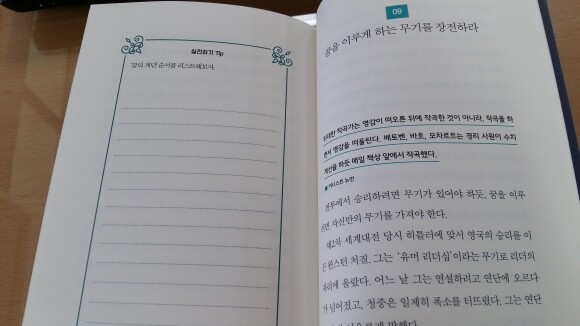 실전하기 Tip
순서를 리스트해보자.
09
꿈을 이루게 하는 무기를 장전하라
작곡가는 영감이 떠오른 뒤에 작곡한 것이 아니라, 작곡을 하
면서 영감을 떠올린다. 베토벤, 바흐, 모차르트는 경리 사원이 수치
계산을 하듯 매일 책상 앞에서 작곡했다.
어니스트 뉴먼
전투에서 승리하려면 무기가 있어야 하듯, 꿈을 이루
려면 자신만의 무기를 가져야 한다.
제2차 세계대전 당시 히틀러에 맞서 영국의 승리를 이
끈 윈스턴 처칠. 그는 '유머 리더십'이라는 무기로 리더의
자리에 올랐다. 어느 날 그는 연설하려고 연단에 오르다
가 넘어졌고, 청중은 일제히 폭소를 터뜨렸다. 그는 연단